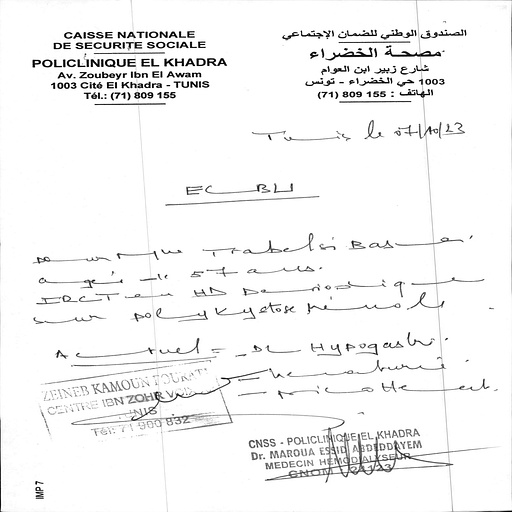 CAISSE NATIONALE
DE SECURITE SOCIALE
POLICLINIQUE EL KHADRA
Av. Zoubeyr Ibn El Awam
1003 Cité El Khadra - TUNIS
Tél.: (71) 809 155
الصندوق الوطني للضمان الإجتماعي
مصحة الخضراء
شارع زبير ابن العوام
1003 حي الخضراء - تونس
الهاتف : 155 809 (71)
Tunis le 07/10/23
ECBU
Trabelsi
agé de 57 ans.
IRCT en HD periodique
sur polykystose rénale
Actuel = DL Hypogastri.
- hematurie
ZEINEB KAMOUN
CENTRE IBN ZOHR
TUNIS
Tél: 71 900 832
CNSS - POLICLINIQUE EL KHADRA
Dr. MAROUA ESSID ABDEDDAYEM
MEDECIN HEMODIALYSEUR
CNOM
IMP 7